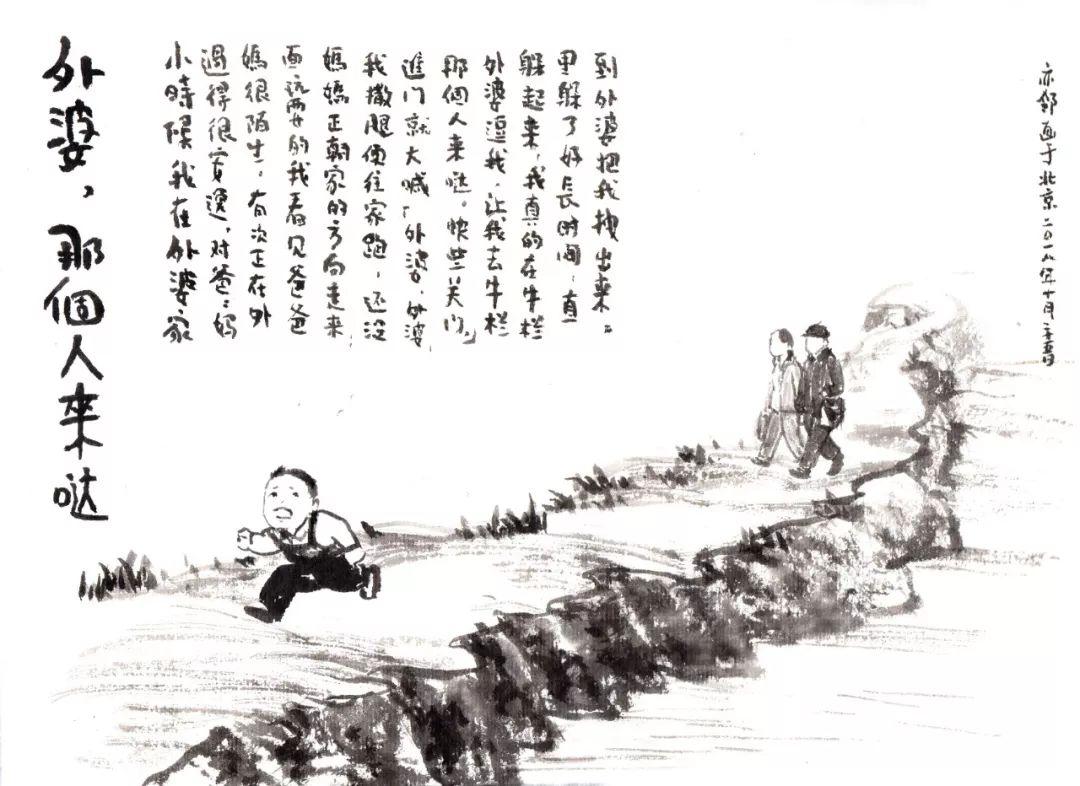 外婆，那個人来哒
小時候我在外婆家
過得很安逸，对爸々妈
媽很陌生。有次正在外
面玩耍的我看见爸爸
媽媽正朝家的方向走来
我撒腿便往家跑，还没
進门就大喊「外婆，外婆
那個人来哒。快些关门」
外婆逗我，让我去牛栏
躲起来，我真的在牛栏
里躲了好長时间，直
到外婆把我拽出来。
亦邻画于北京二〇一八年十月